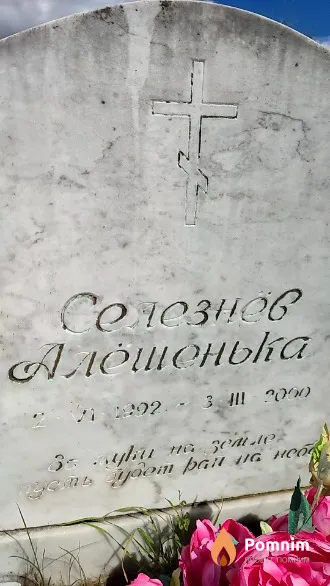 Селезнёв
Алёшенька
2 VI 1992 - 3 III 2000
За муки на земле
пусть будет рай на небе
Pomnim